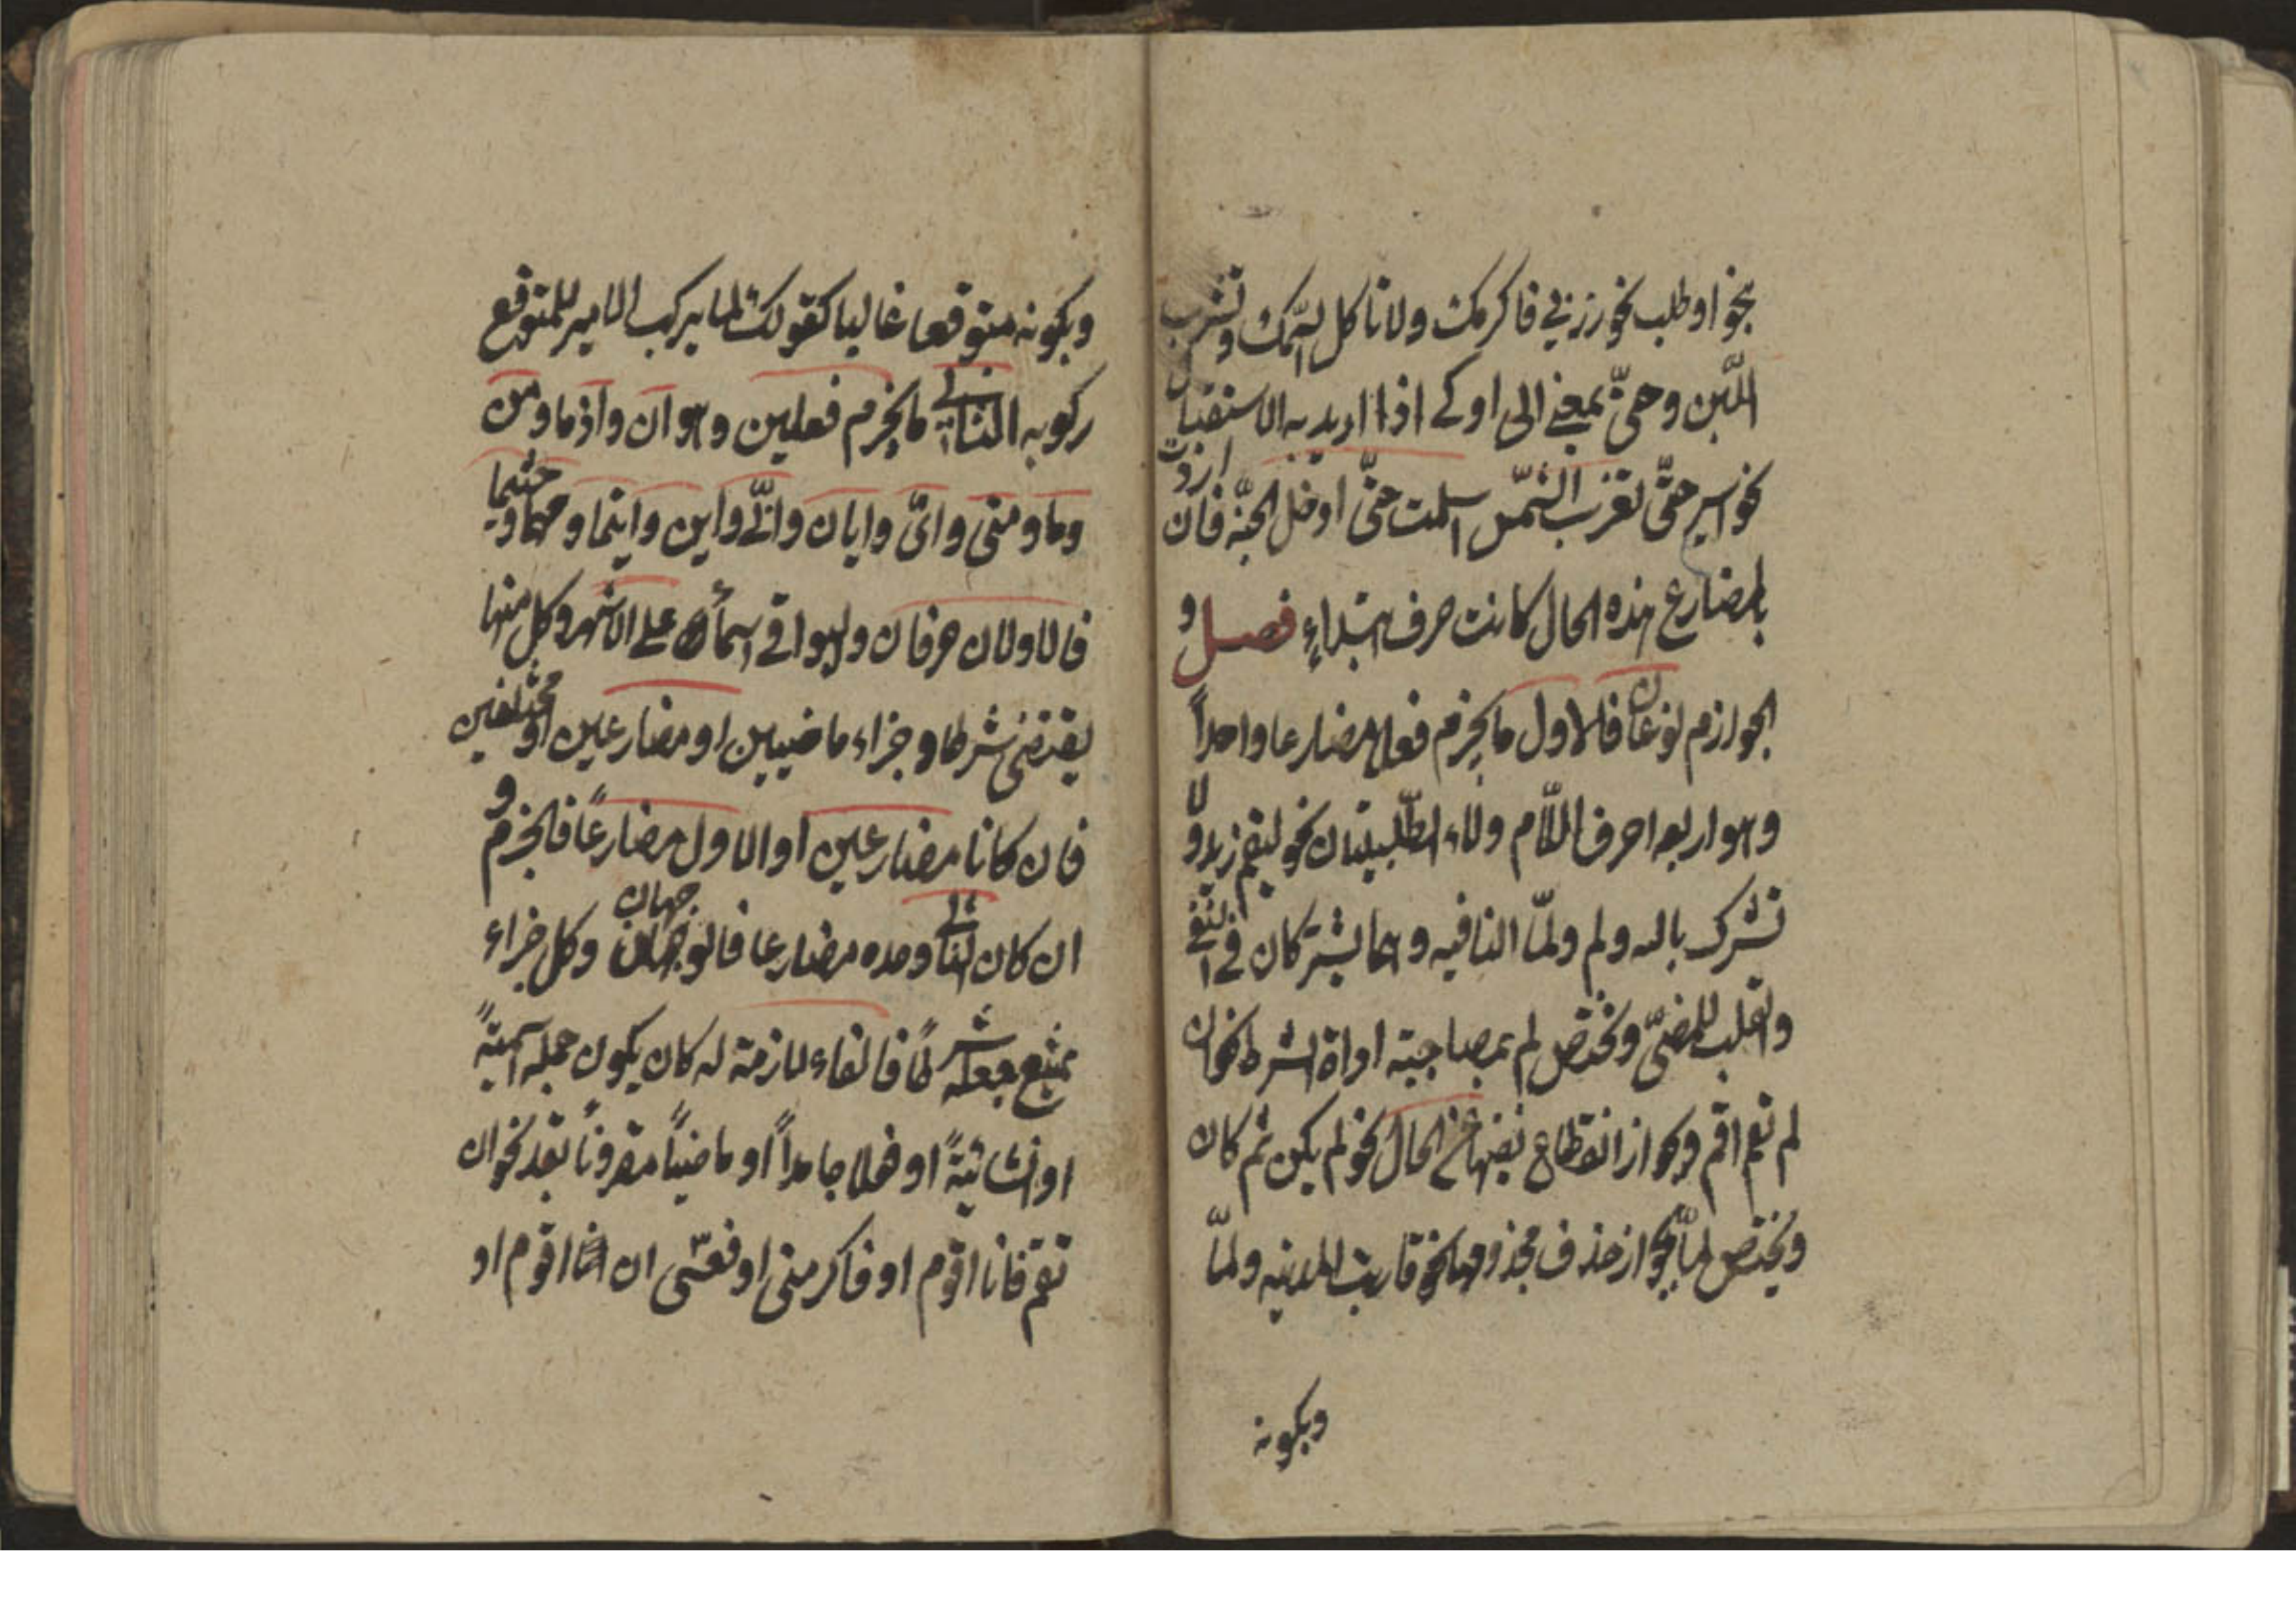 نحو او طلب نحو زرني فاكرمك ولا تاكل السّمك وتشرب
اللّبن وحتىّ بمعنى الى او كي اذا اريد به الاستقبال
نحو اسير حتىّ تغرب الشّمس اسلمت حتىّ ادخل الجنّة فان اردت
بالمضارع هذه الحال كانت حرف ابتداءٍ فصل و
الجوازم نوعان فالاول ما يجزم فعلا مضارعا واحداً
وهو اربعه احرف اللّام ولاء الطّلبيتان نحو ليقم زيد و لا
تشرك بالله ولم ولمّا النافيه وهما يشتركان في النفي
والقلب للمضىّ وتختص لم بمصاحبة اداة الشرط نحو ان
لم تقم اقم وجواز انقطاع نفيها عن الحال نحو لم يكن ثم كان
ويختص لمّا بجواز حذف مجذومها نحو قاربت المدينه ولمّا
وبكونه
وبكونه متوقعا غالبا كقولك لما يركب الامير للمتوقع
ركوبه الثاني ما يجزم فعلين وهو ان واذما ومن
وما ومتى واىّ وايان وانّى واين واينما ومهما وحيثما
فالاولان حرفان والبواقي اسماء على الاشهر وكل منها
يقتضى شرطا وجزاء ماضيين او مضارعين او مختلفين
فان كانا مضارعين او الاول مضارعاً فالجزم و
ان كان الثاني وحده مضارعا فالوجهان جهان وكل جزاء
يمتنع جعله شرطاً فالفاء لازمة له كان يكون جمله اسميّةً
او انشائيّةً او فعلا جامداً او ماضياً مقروناً بقد نحو ان
تقم فانا اقوم او فاكرمنى او فعسّى ان اقوم او